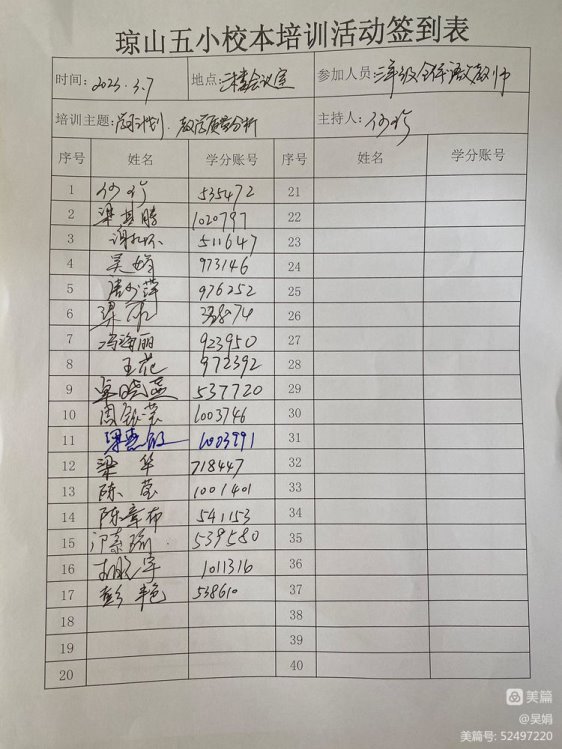 琼山五小校本培训活动签到表
时间：2023.3.7 地点：三楼会议室 参加人员：三年级全体语文教师
培训主题：教学计划、教学质量分析 主持人：何珍
序号 姓名 学分账号 序号 姓名 学分账号
1 535472 21
2 梁其腾 1020797 22
3 511647 23
4 吴娟 973146 24
5 976252 25
6 梁 26
7 冯海丽 923950 27
8 王花 972392 28
9 卓晓燕 537720 29
10 周 1003746 30
11 梁惠 1003991 31
12 梁华 718447 32
13 陈莹 1001401 33
14 陈章布 541153 34
15 539580 35
16 1011316 36
17 彭艳 538610 37
18 38
19 39
20 40
美篇
@吴娟
美篇号: 52497220